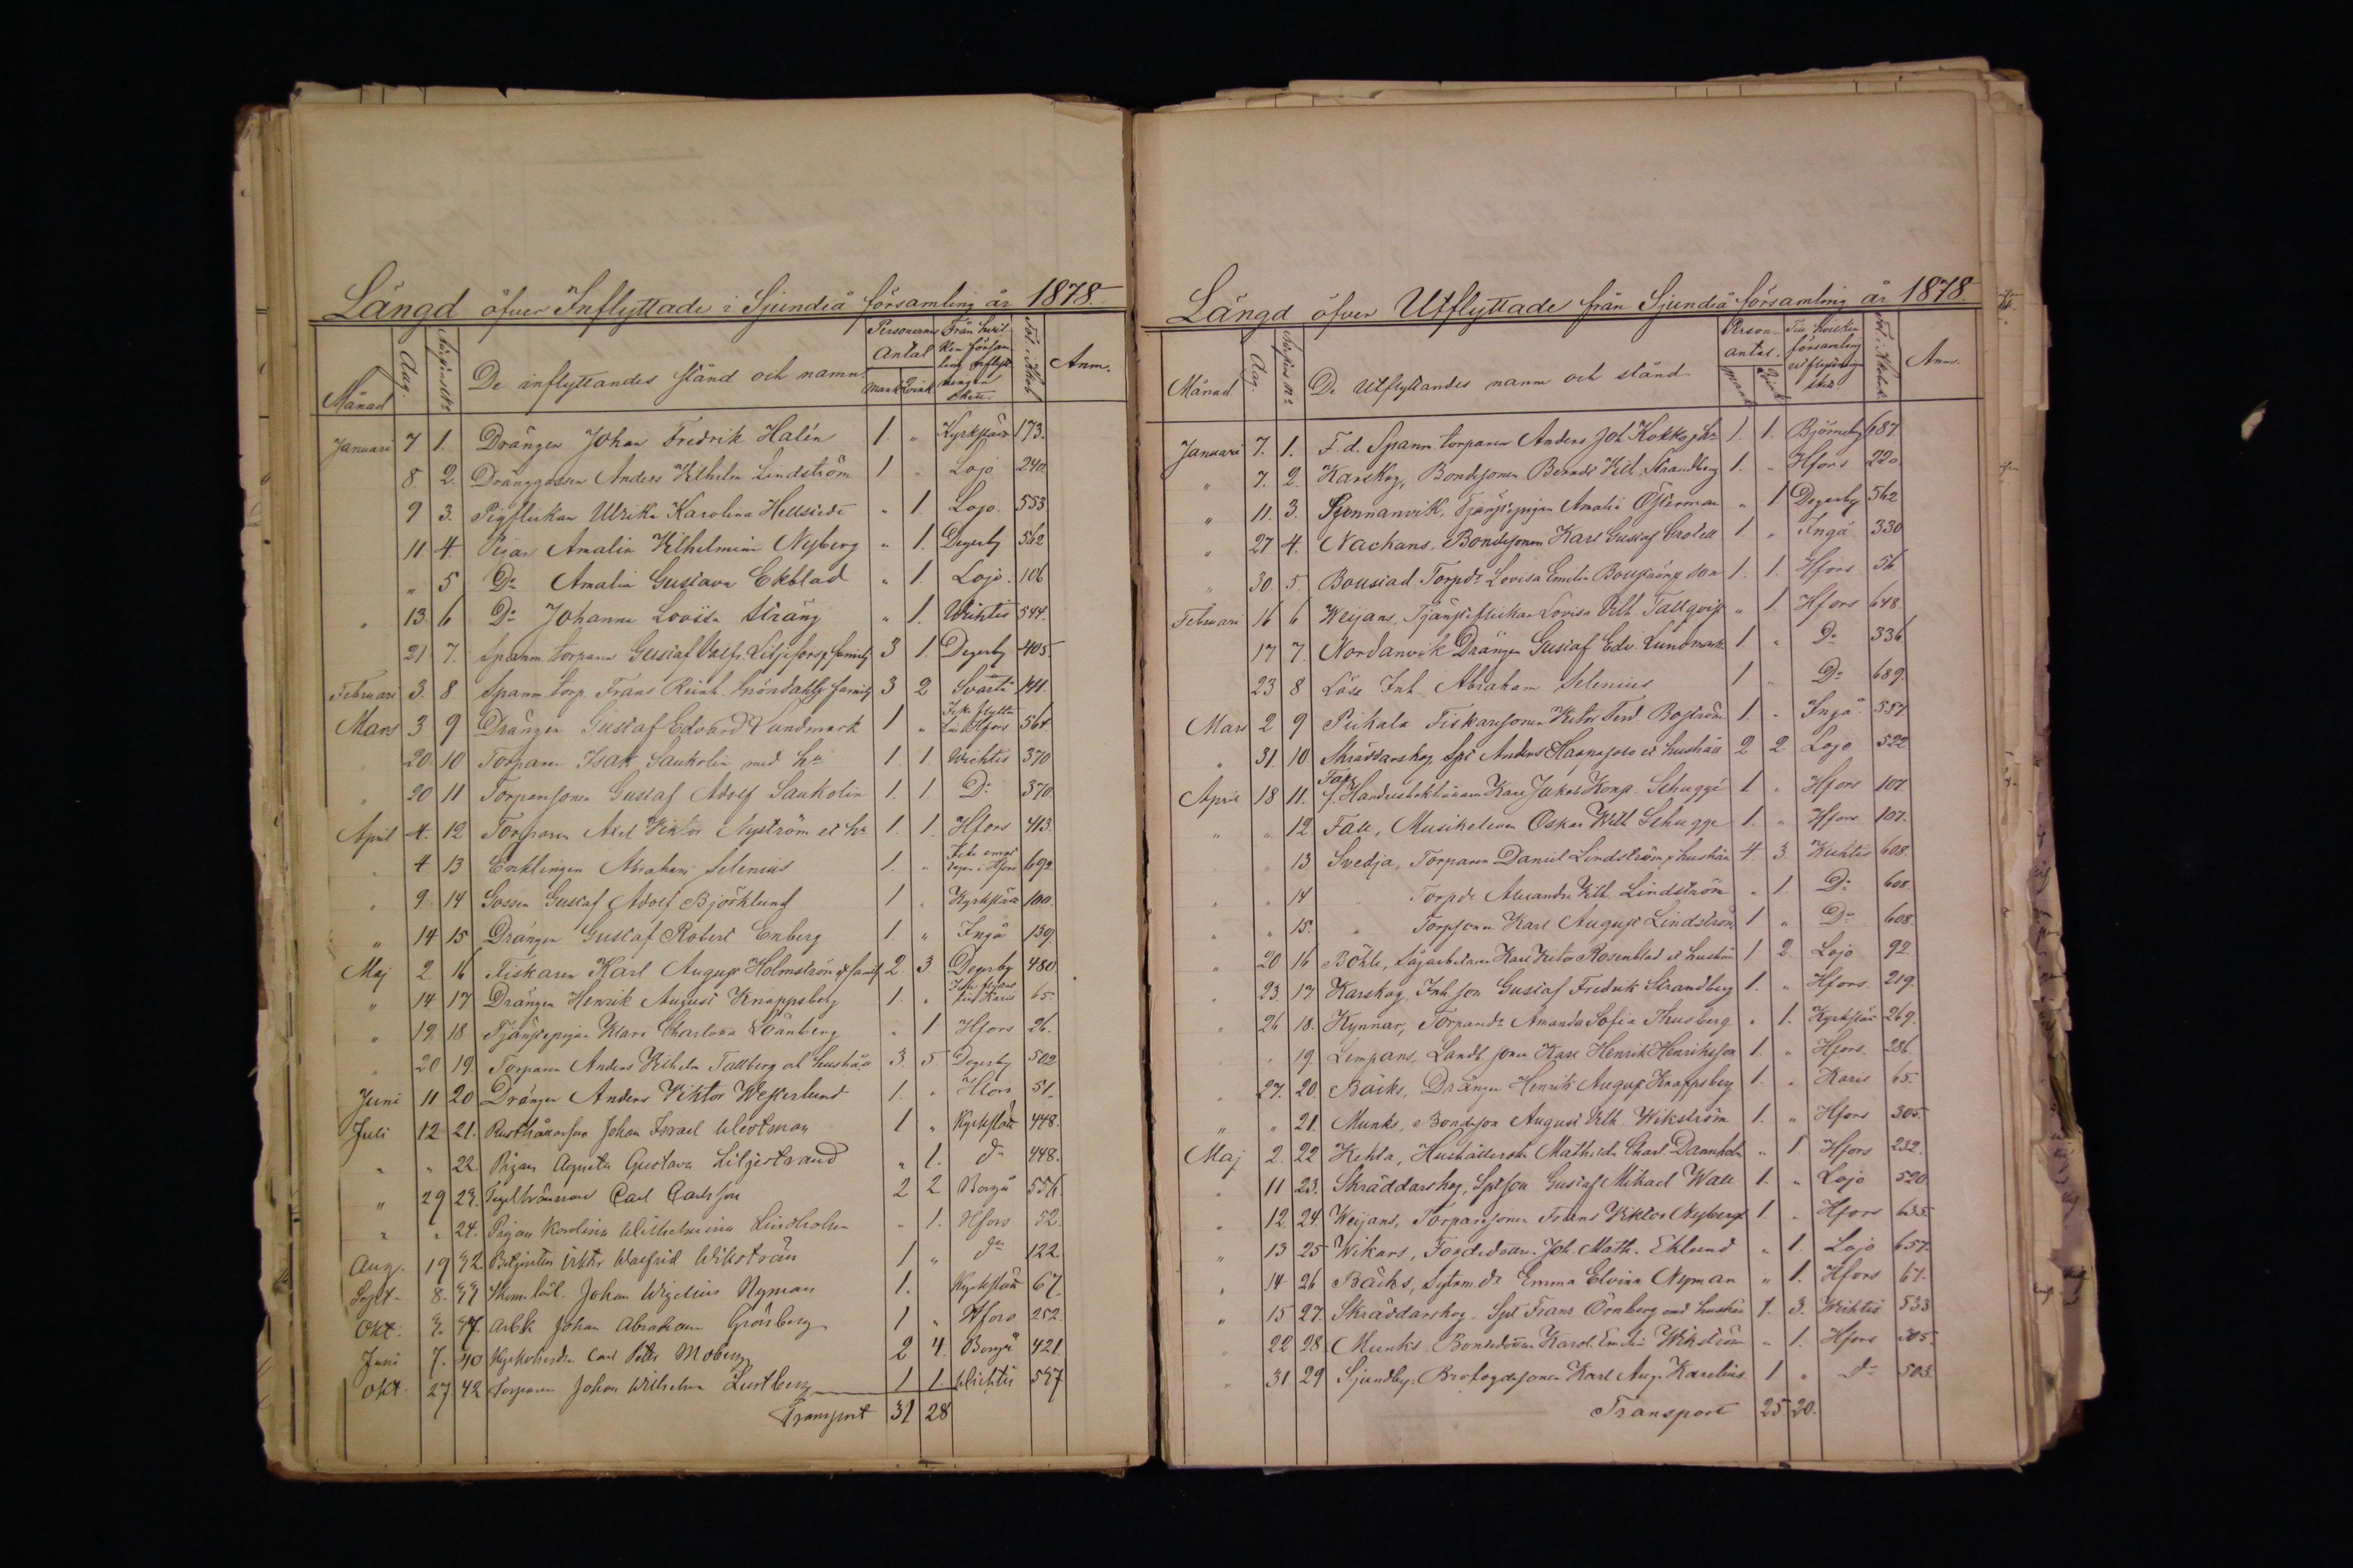 Längd öfver Inflyttade i Sjundeå församling år 1878.
Månad Dag. De inflyttandes stånd och namn. Personernas Antal Mank. Qvink. Från hvilken församling inflyttningen skett. Anm.
Januari 7 1. Drängen Johan Fredrik Halén 1. " Kyrkslätt 173.
8 2. Dränggossen Anders Vilhelm Lindström 1 " Lojo 240.
9 3. Pigflickan Ulrika Karolina Hellstedt " 1. Lojo. 553
11 4. Pigan Amalia Vilhelmina Nyberg " 1. Degerby 562
" 5 Do Amalia Gustava Ekblad " 1. Lojo. 106
" 13 6 Do Johanna Lovisa Sträng " 1. Wichtis 544.
21 7. Spanm. torparen Gustaf Valfr. Liljefors & familj 3 1. Degerby 405.
Februari 3. 8 Spanm. torp. Frans Reinh. Gröndahl & familj 3 2 Svartå 441.
Mars 3 9 Drängen Gustaf Edvard Lundmark 1 " Icke flyttat till Hfors 564.
20 10 Torparen Isak Saukolin med hu 1. 1. Wichtis 370
20 11 Torparesonen Gustaf Adolf Saukolin 1. 1. Do 370
April 4. 12 Torparen Axel Viktor Nyström et hu 1. 1. Hfors 413.
4 13 Enklingen Abraham Selenius 1. " Icke emottagen i Hfors 692.
9 14 Gossen Gustaf Adolf Björklund 1 " Kyrkslätt 100.
" 14 15 Drängen Gustaf Robert Enberg 1. " Ingå 139.
Maj 2 16 Fiskaren Karl August Holmström & familj 2 3 Degerby 480.
" 14 17 Drängen Henrik August Knappsberg 1. " till Karis 65.
" 19 18 Tjänstepigan Klara Charlotta Lönnberg " 1 Hfors 26.
20 19. Torparen Anders Vilhelm Tallberg och hushåll 3. 5 Degerby 502
Juni 11 20 Drängen Anders Viktor Westerlund 1. " Hfors 51.
Juli 12 21. Rusthållarson Johan Israel Westman 1 " Kyrkslätt 448.
" " 22. Pigan Agneta Gustava Liljestrand " 1. do 448.
" 29 23. Carl Carlsson 2 2 Borgå 554.
" " 24. Pigan Karolina Wilhelmina Lindholm " 1. Hfors 52.
Aug. 19 32. Viktor Walfrid Wikström 1 " do 122.
Sept. 8. 33 Johan Nyman 1. Kyrkslätt 67.
Okt. 37. Arbk. Johan Abraham Grönberg 1 " Hfors 252.
Juni 7. 40 Carl Petter Moberg 2 4. Borgå 421.
Okt. 27 42 Torparen Johan Wilhelm Lustberg 1 1. Wichtis 537
Transport 31 28
Längd öfver Utflyttade från Sjundeå församling år 1878.
Månad Dag. De Utflyttandes namn och stånd. Person antal. Till hvilken församling utflyttningen sker. Anm.
Januari 7. 1. F. d. Spanm torparen Anders Joh. Kokko & hu 1. 1. Björneby 687.
" 7. 2. Karskog, Bondesonen Berndt Vilh. Strandberg 1. " Hfors 220.
" 11. 3. Tjänstepigan Amalia Österman " 1 Degerby 562
" 27 4. Nackans, Bondesonen Karl Gustaf Grotell 1 " Ingå 330
" 30 5 Boustad Torpdr Lovisa Emilia son 1. 1. Hfors 56
Februari 16 6 Weijans, Tjänsteflickan Lovisa Vilh. Tallqvist " 1. Hfors 648.
17 7. Nordanvik Drängen Gustaf Edv. Lundmark 1 " Do 336
23 8 Löse Inh. Abraham Selenius 1 " Do 689.
Mars 2 9 Pickala Fiskaresonen Viktor Ferd. Boström 1. " Ingå 557.
" 31. 10. Skräddarskog, Spt Anders Haapasalo et hushåll 2 2 Lojo 522
April 18 11. Fall, Handelsbokhållaren Karl Jakob Konr. Schuggé 1 " Hfors 107.
" " 12 Fall, Musikeleven Oskar Wilh. Schugge 1. " Hfors 107.
" 13 Svedja, Torparen Daniel Lindström & hushåll 4. 3. Wichtis 608.
" " 14 " Torpdr Alexandra Vilh. Lindström " 1. Do 608.
" " 15. " Torpsonen Karl August Lindström 1 " Do 608.
" 20 16 Böhle, Sågarbetaren Karl Viktor Rosenblad et hushåll 1 2. Lojo 92
" 23. 17 Karskog, Inh. son Gustaf Fredrik Strandberg 1. " Hfors. 219.
" 26 18. Kynnar, Torparedr Amanda Sofia Thusberg " 1. Kyrkslätt 269.
" " 19. Lempans, Landb. sonen Karl Henrik Henriksson 1. " Hfors. 286.
" 27. 20. Bäcks, Drängen Henrik August Knappsberg 1. " Karis 65.
" " 21. Munks, Bondeson August Vilh. Wikström 1. " Hfors 305.
Maj 2. 22 Kehla, Hushållerskan Mathilda Charl. Dannholm " 1 Hfors 232.
" 11 23. Skräddarskog, Sptson Gustaf Mikael Wall 1. " Lojo 520
" 12. 24. Weijans, Torparesonen Frans Viktor Nyberg 1. " Hfors 655.
" 13 25 Wikars, Fogdedottern Joh. Math. Eklund " 1. Lojo 657.
" 14 26 Bäcks, Sytnm. dr Emma Elvina Nyman " 1. Hfors 67.
" 15 27. Skräddarskog, Spt Frans Örnberg med hushåll 1. 3. Wichtis 533
" 22 28 Munks Bondedottern Karol. Emilia Wikström " 1. Hfors 305.
" 31. 29 Sjundby, Brofogdesonen Karl Aug. Karelius. 1 " do 503.
Transport 25 20.